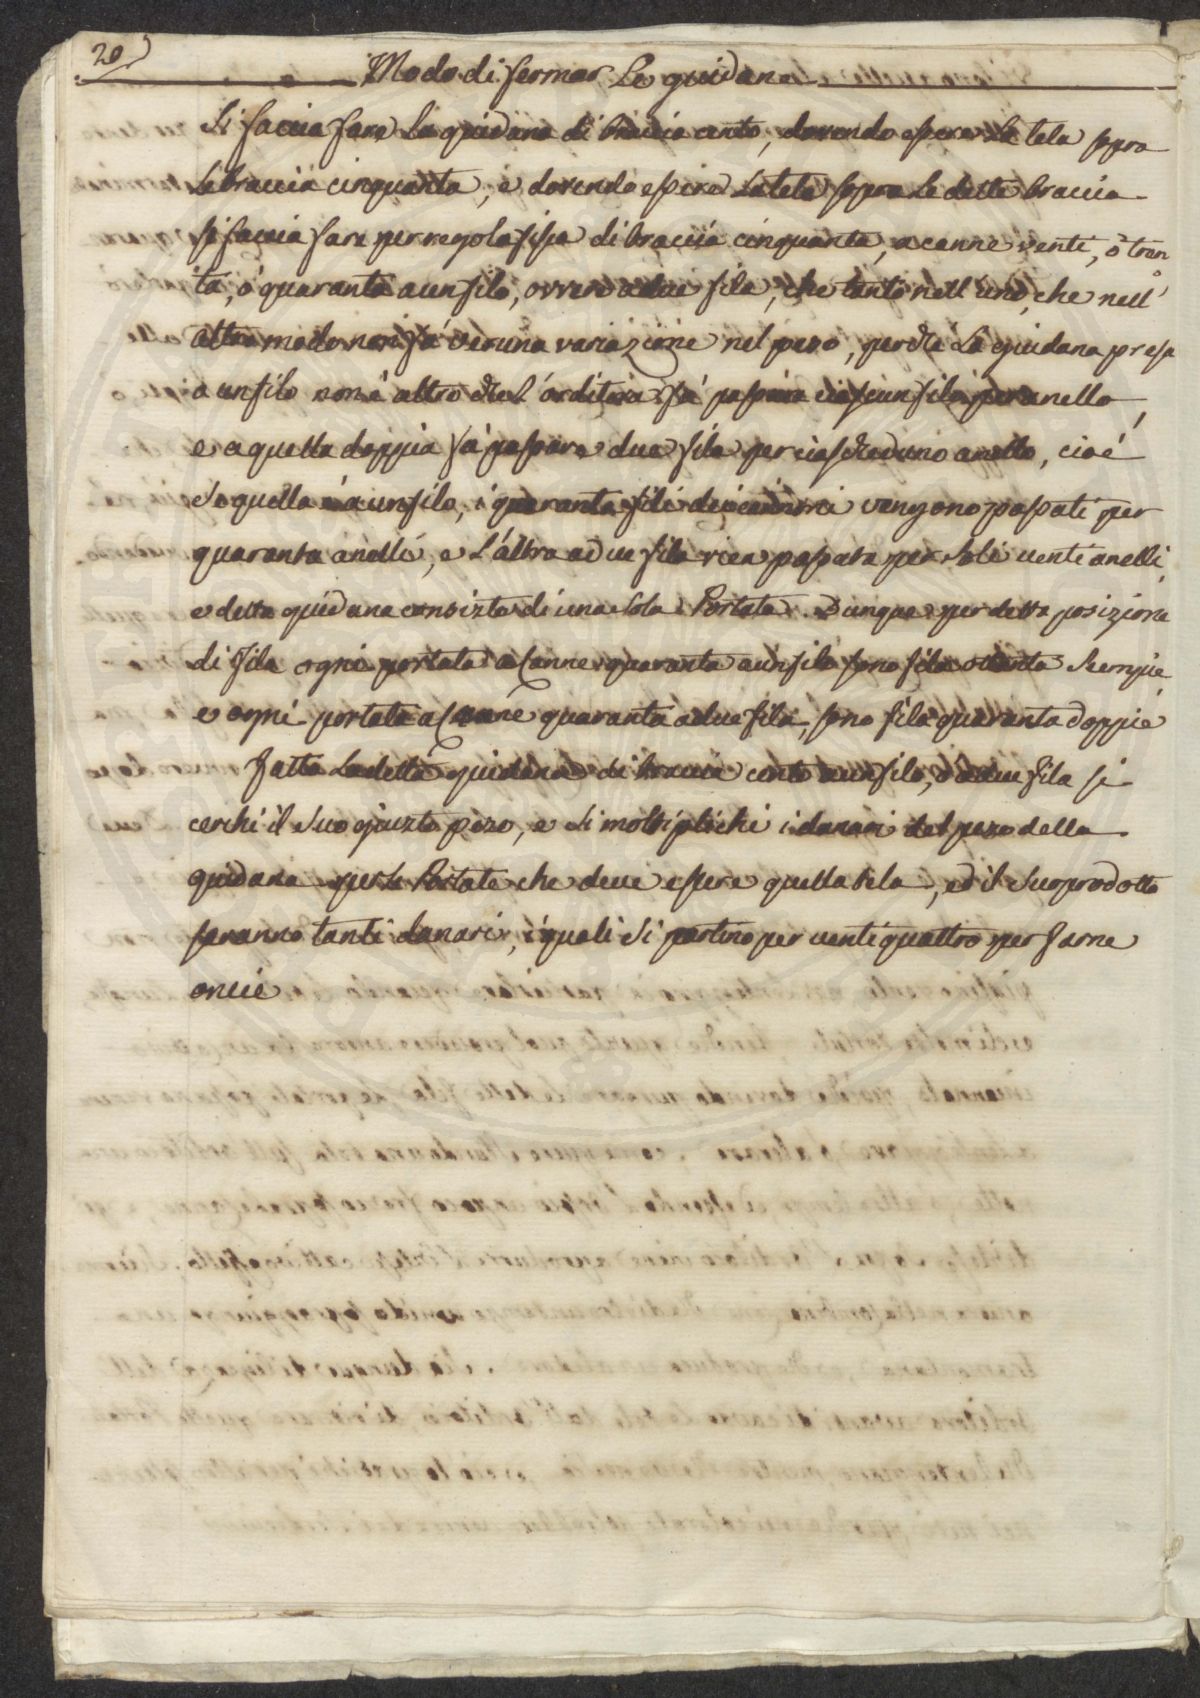 20
Modo di fermar Le guidane
Si faccia fare La guidana di braccia cento, dovendo essere La tela sopra
Le braccia cinquanta, e dovendo essere La tela sopra Le dette braccia
si faccia fare per regola fissa di braccia cinquanta, a canne venti, ò tren
ta, ò quaranta a un filo, ovvero a due fila, che tanto nell' uno, che nell'
altro modo non fà veruna variazione nel pezo, perchè La guidana presa
a un filo non è altro che L'orditora fà passare ciascun filo per anello,
e a quella doppia fà passare due fila per ciascheduno anello, cioè
Se quella è a un filo, i quaranta fili dei cannoni vengono passati per
quaranta anelli, e L'altra a due fila vien passata per Soli venti anelli,
e detta guidana consiste di una Sola Portata. Dunque per detta posizione
di fila ogni portata a Canne quaranta a un filo sono fila ottanta Scempie,
e ogni portata a Canne quaranta a due fila, sono fila quaranta doppie
Fatta La detta guidana di braccia cento a un filo, ò a due fila si
cerchi il Suo giusto pezo, e Si moltiplichi i danari del pezo della
guidana per Le Portate che deve essere quella tela, ed il Suo prodotto
saranno tanti danari, i quali Si partino per venti quattro per farne
oncie